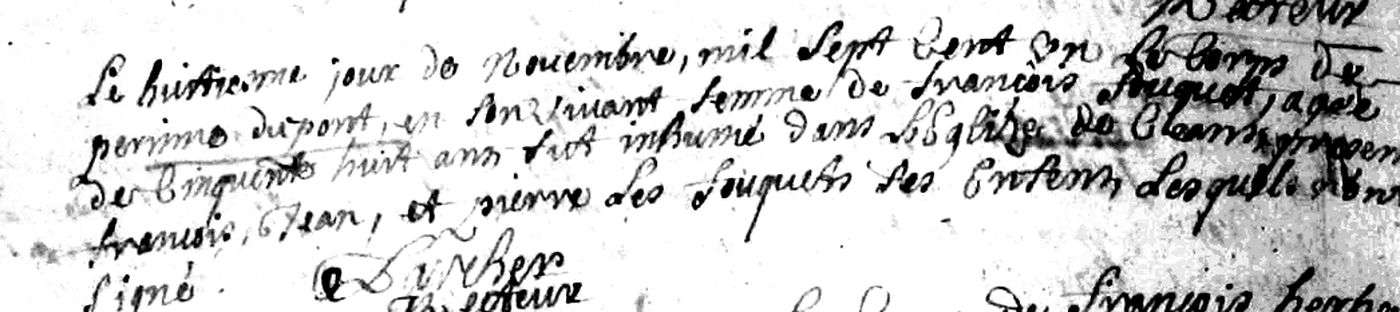 Recteur
Le huitiesme jour de Novembre, mil sept Cent un Le Corps de
perinne dupont, en son vivant femme de françois fouquet, agée
de Cinquente huit ans fut inhumé dans L'Eglize de Cleans, presen
françois, Jean, et pierre Les fouquets ses Enfens, Lesquels n'on
signé.
Recteur
de françois